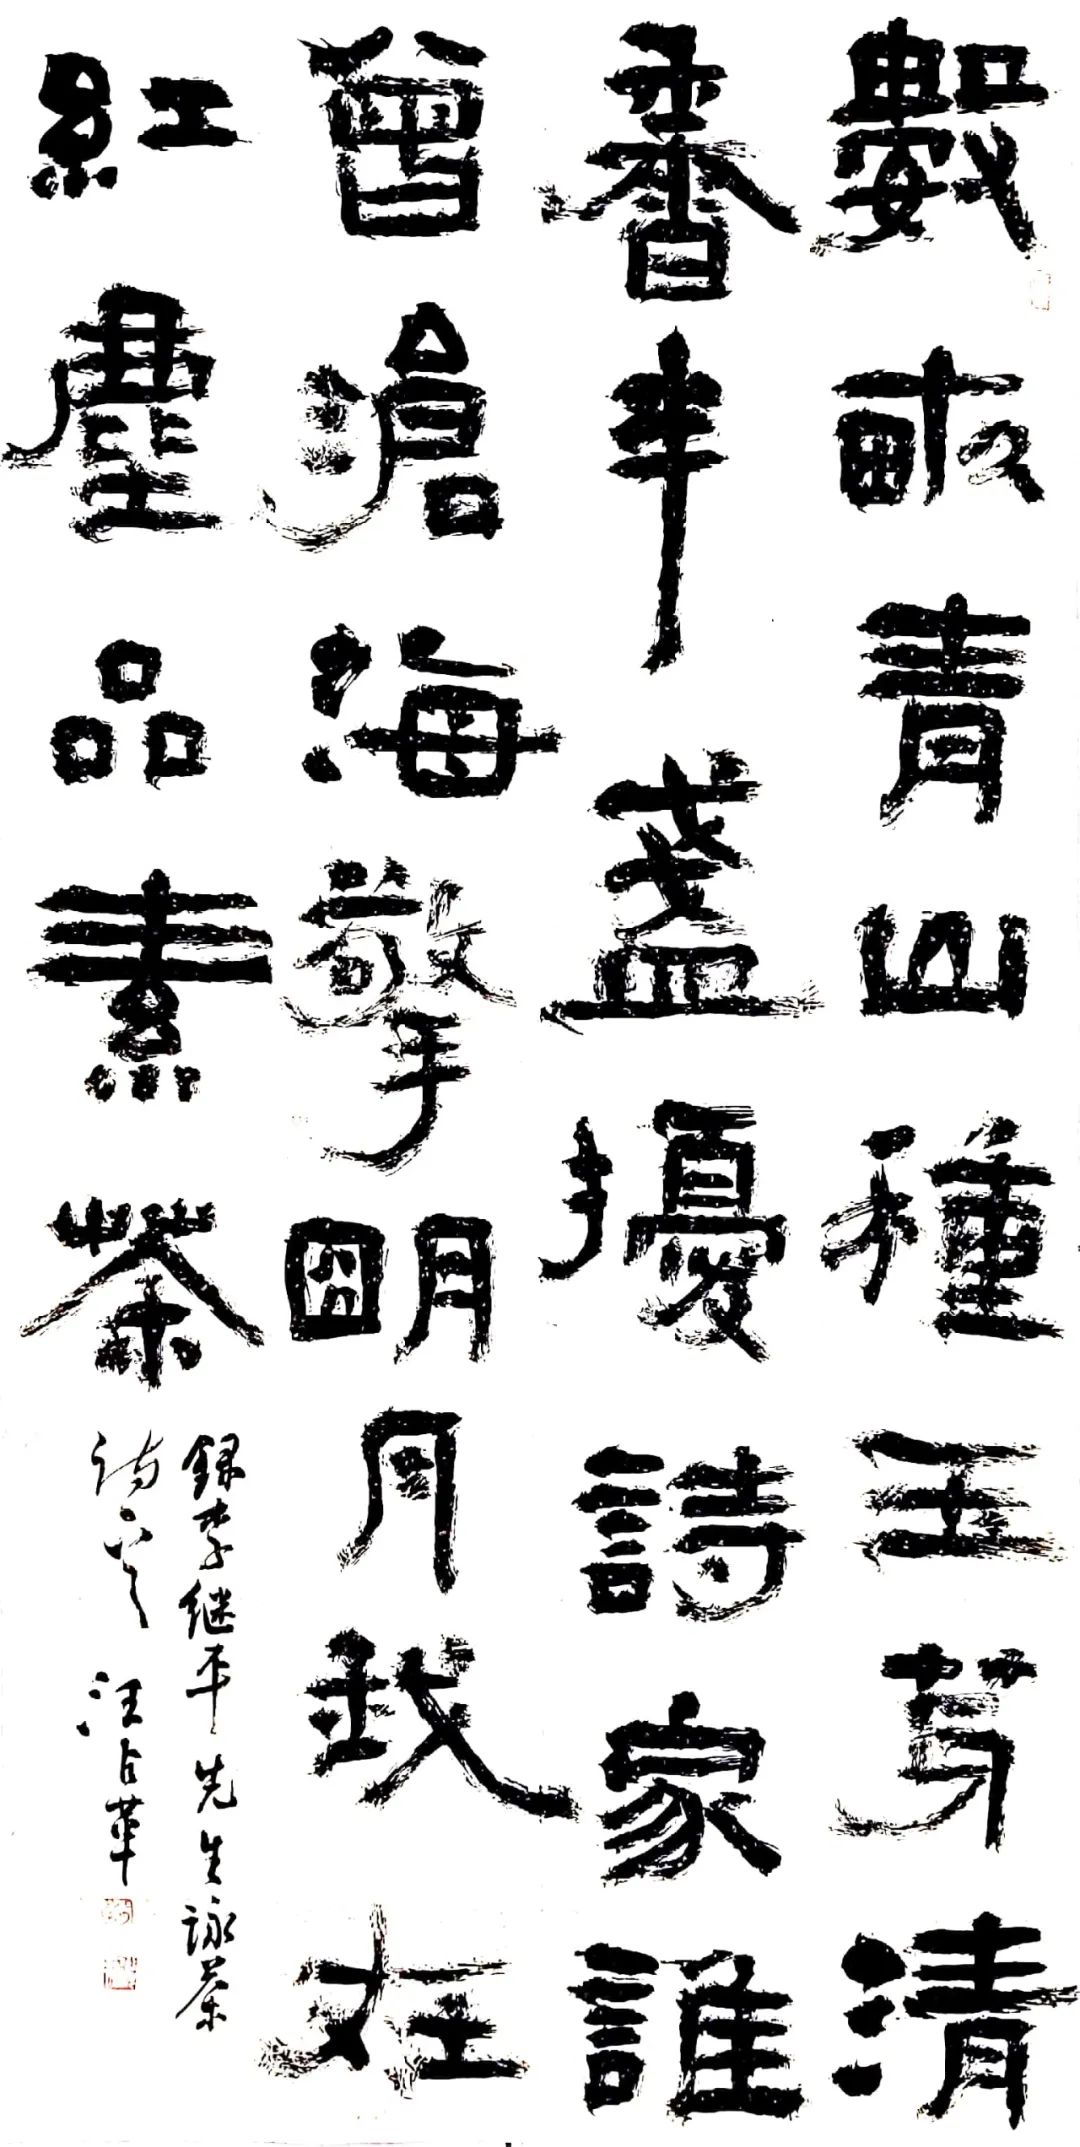 數畝青山種玉芽清
香半盞擾詩家誰
曾滄海擎明月我在
紅塵品素茶
録李继平先生詠茶
诗一首 汪占革